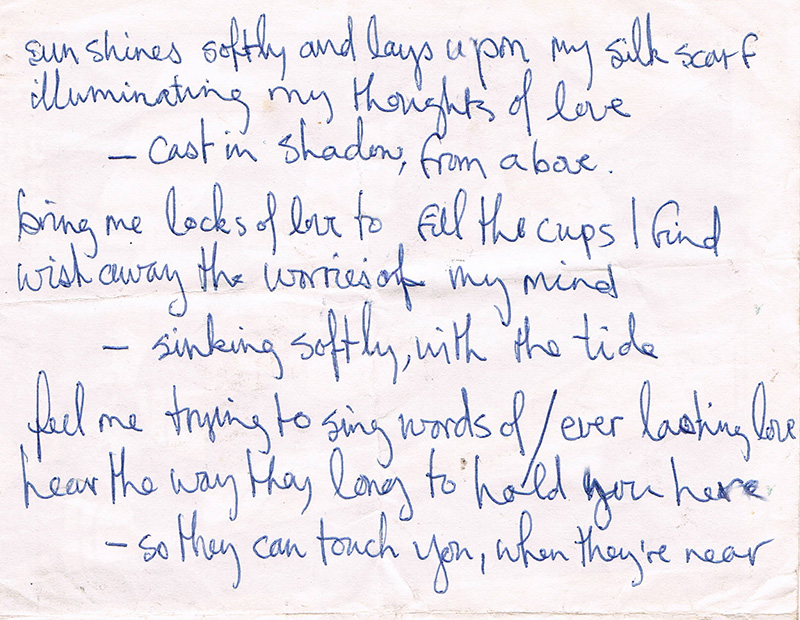 sun shines softly and lays upon my silk scarf
illuminating my thoughts of love
– cast in shadow, from above.
bring me locks of love to fill the cups I find
wish away the worries of my mind
– sinking softly, with the tide
feel me trying to sing words of / ever lasting love
hear the way they long to hold you here
– so they can touch you, when they're near